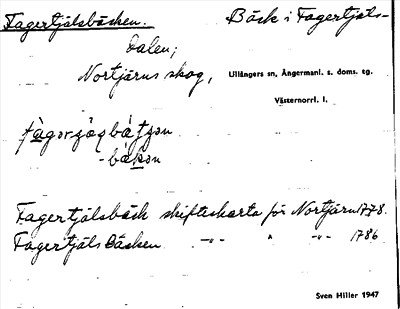 Fagertjälsbäcken. Bäck i Fagertjäls-
dalen;
Nortjärns skog, Ullångers sn, Ångermanl. s. doms. tg.
Västernorrl. l.
-bäkən
Fagertjälsbäck skifteskarta för Nortjärn 1778.
Fagertjäls Bäcken -"- " -"- 1786
Sven Hiller 1947